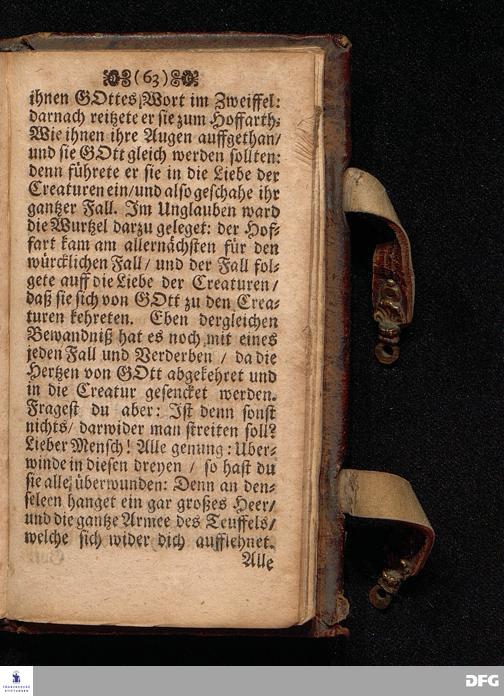 (63)
ihnen GOttes Wort im Zweiffel:
darnach reitzete er sie zum Hoffarth:
Wie ihnen ihre Augen auffgethan/
und sie GOtt gleich werden sollten:
denn führete er sie in die Liebe der
Creaturen ein/und also geschahe ihr
gantzer Fall. Im Unglauben ward
die Wurtzel darzu geleget: der Hof-
fart kam am allernächsten für den
würcklichen Fall/ und der Fall fol-
gete auff die Liebe der Creaturen/
daß sie sich von GOtt zu den Crea-
turen kehreten. Eben dergleichen
Bewandniß hat es noch mit eines
jeden Fall und Verderben / da die
Hertzen von GOtt abgekehret und
in die Creatur gesencket werden.
Fragest du aber: Ist denn sonst
nichts/ darwider man streiten soll?
Lieber Mensch! Alle genung: Uber-
winde in diesen dreyen / so hast du
sie alle überwunden: Denn an den-
selben hanget ein gar großes Heer/
und die gantze Armee des Teuffels/
welche sich wider dich aufflehnet.
Alle
FRANCKESCHE
STIFTUNGEN
DFG